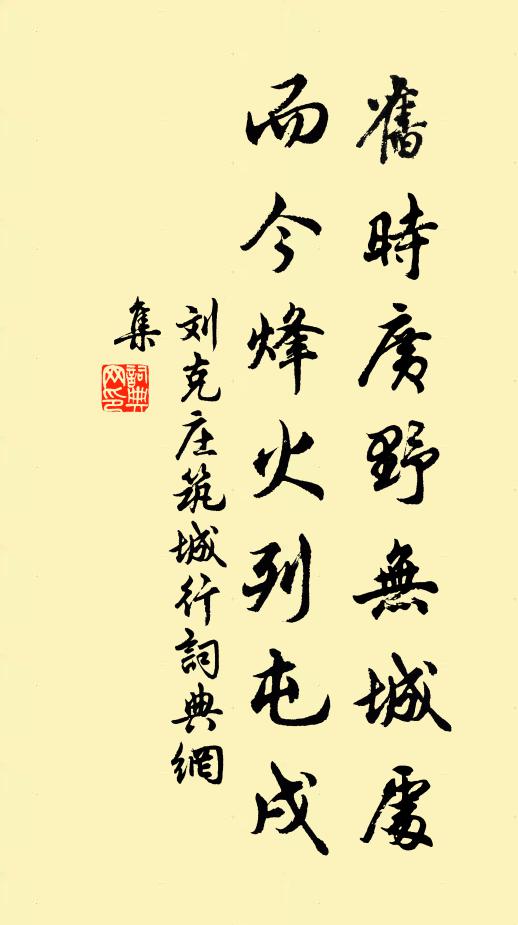 舊時廣野無城處
而今烽火列屯戍
刘克庄筑城行詞典網
集
詞典網印